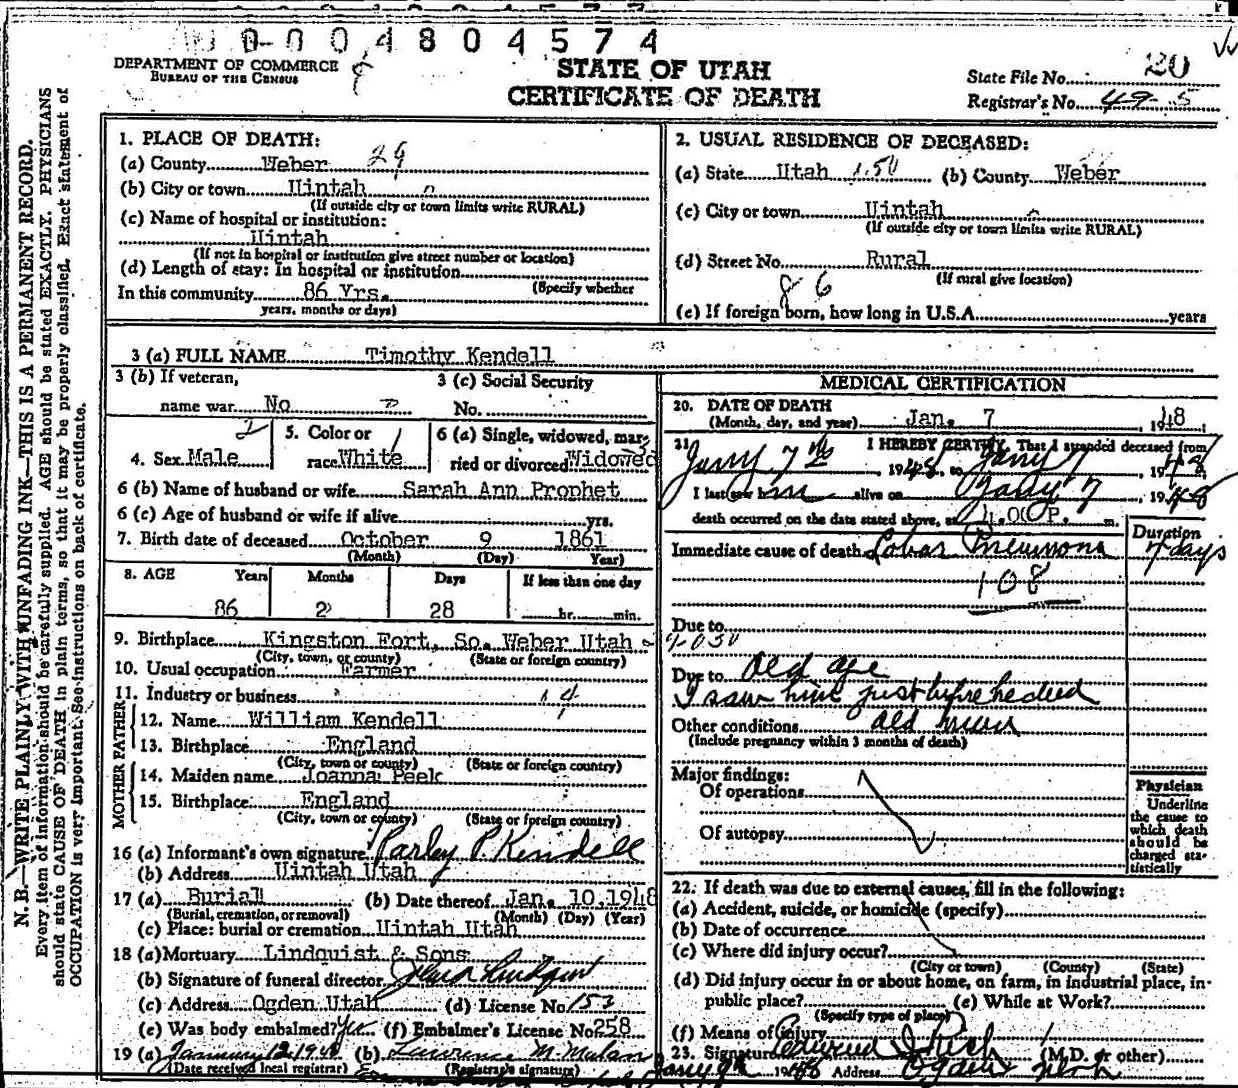 0004804574
DEPARTMENT OF COMMERCE
BUREAU OF THE CENSUS
STATE OF UTAH
CERTIFICATE OF DEATH
State File No. 20
Registrar's No. 49-5
N. B.—WRITE PLAINLY WITH UNFADING INK—THIS IS A PERMANENT RECORD.
Every item of information should be carefully supplied. AGE should be stated EXACTLY. PHYSICIANS
should state CAUSE OF DEATH in plain terms, so that it may be properly classified. Exact statement of
OCCUPATION is very important. See instructions on back of certificate.
1. PLACE OF DEATH:
(a) County Weber 29
(b) City or town Uintah
(If outside city or town limits write RURAL)
(c) Name of hospital or institution:
Uintah
(If not in hospital or institution give street number or location)
(d) Length of stay: In hospital or institution
(Specify whether
In this community 86 Yrs.
years, months or days)
2. USUAL RESIDENCE OF DECEASED:
(a) State Utah 1.50 (b) County Weber
(c) City or town Uintah
(If outside city or town limits write RURAL)
(d) Street No. Rural
(If rural give location)
86
(e) If foreign born, how long in U.S.A. years
3 (a) FULL NAME Timothy Kendell
3 (b) If veteran,
name war No
3 (c) Social Security
No.
4. Sex Male
5. Color or
race White
6 (a) Single, widowed, mar-
ried or divorced Widowed
6 (b) Name of husband or wife Sarah Ann Prophet
6 (c) Age of husband or wife if alive yrs.
7. Birth date of deceased October 9 1861
(Month) (Day) Year)
8. AGE Years Months Days If less than one day
86 2 28 hr. min.
9. Birthplace Kingston Fort, So. Weber Utah
(City, town, or county) (State or foreign country)
10. Usual occupation Farmer
11. Industry or business
FATHER
12. Name William Kendell
13. Birthplace England
(City, town or county) (State or foreign country)
MOTHER
14. Maiden name Joanna Peek
15. Birthplace England
(City, town or county) (State or foreign country)
16 (a) Informant's own signature Parley P. Kendell
(b) Address Uintah Utah
17 (a) Burial (b) Date thereof Jan. 10.1948
(Burial, cremation, or removal) (Month) (Day) (Year)
(c) Place: burial or cremation Uintah Utah
18 (a) Mortuary Lindquist & Sons
(b) Signature of funeral director Lindquist
(c) Address Ogden Utah (d) License No. 153
(e) Was body embalmed? Yes (f) Embalmer's License No. 258
19 (a) January 12 1948 (b) Lawrence M. Malan
(Date received local registrar) (Registrar's signature)
MEDICAL CERTIFICATION
20. DATE OF DEATH
(Month, day, and year) Jan. 7, 1948
21 I HEREBY CERTIFY, That I attended deceased from
Jany 7th, 1948, to Jany 7, 1948
I last saw him alive on Jany 7, 1948
death occurred on the date stated above, at 4.00 P. m.
Duration
Immediate cause of death Lobar Pneumonia 7 days
108
Due to
Due to Old age
I saw him just before he died
Other conditions old man
(Include pregnancy within 3 months of death)
Major findings:
Of operations
Of autopsy
Physician
Underline
the cause to
which death
should be
charged sta-
tistically
22. If death was due to external causes, fill in the following:
(a) Accident, suicide, or homicide (specify)
(b) Date of occurrence
(c) Where did injury occur?
(City or town) (County) (State)
(d) Did injury occur in or about home, on farm, in industrial place, in
public place? (e) While at Work?
(Specify type of place)
(f) Means of injury
23. Signature Edward I Rich (M.D. or other)
Jany 9th 1948 Address Ogden Utah